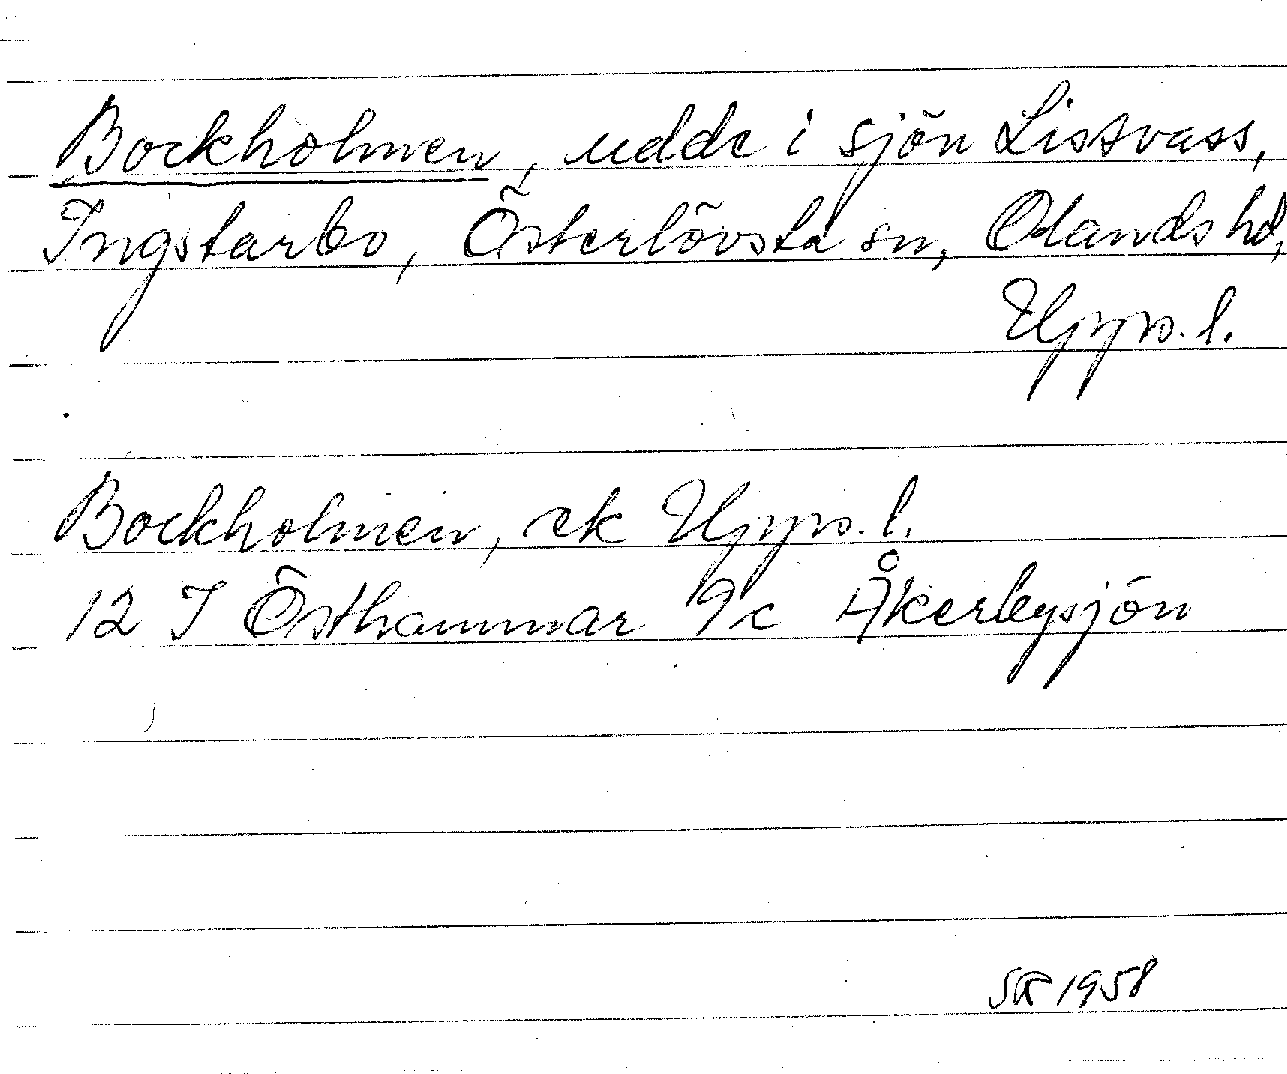 Bockholmen, udde i sjön Lissvass,
Ingstarbo, Österlövsta sn, Olands hd,
Upps. l.
Bockholmen, ek Upps. l.
12 I Östhammar 9c Åkerbysjön
1958